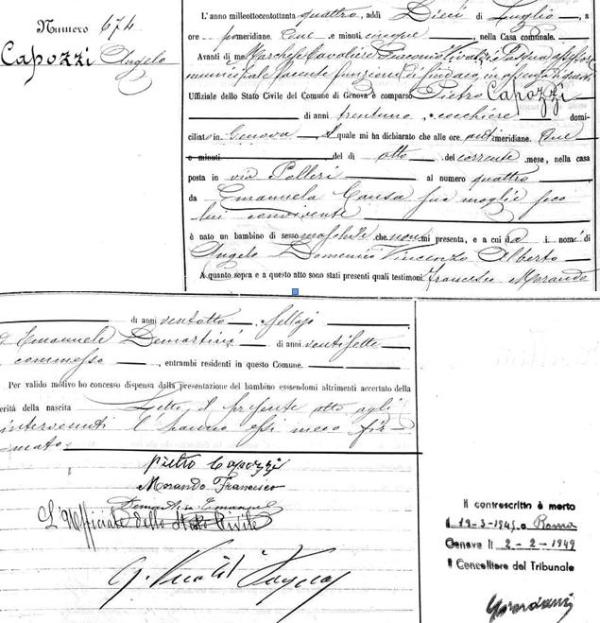 Numero 674
Capozzi Angelo
L'anno milleottocentottanta quattro, addì Dieci di Luglio, a
ore pomeridiane due e minuti cinque, nella Casa comunale.
Avanti di me Marchese Cavaliere Giacomo
municipale facente funzioni di Sindaco,
Uffiziale dello Stato Civile del Comune di Genova è comparso Pietro Capozzi
di anni trentuno, cocchiere domi-
ciliato in Genova il quale mi ha dichiarato che alle ore antimeridiane due
e minuti del dì otto del corrente mese, nella casa
posta in via Polleri al numero quattro
da Emanuela Causa sua moglie seco
lui convivente
è nato un bambino di sesso maschile che non mi presenta, e a cui dà i nomi di
Angelo Domenico Vincenzo Alberto
A quanto sopra e a questo atto sono stati presenti quali testimoni Francesco Morando
di anni ventotto, sellajo
ed Emanuele Demartini di anni ventisette
commesso, entrambi residenti in questo Comune.
Per valido motivo ho concesso dispensa dalla presentazione del bambino essendomi altrimenti accertato della
erità della nascita Letto il presente atto agli
intervenuti l'hanno essi meco fir-
mato
Pietro Capozzi
Morando Francesco
Demartini Emanuele
L'Uffiziale dello Stato Civile
Il controscritto è morto
il 19-3-1945 a Roma
Genova li 2-2-1949
Il Cancelliere del Tribunale